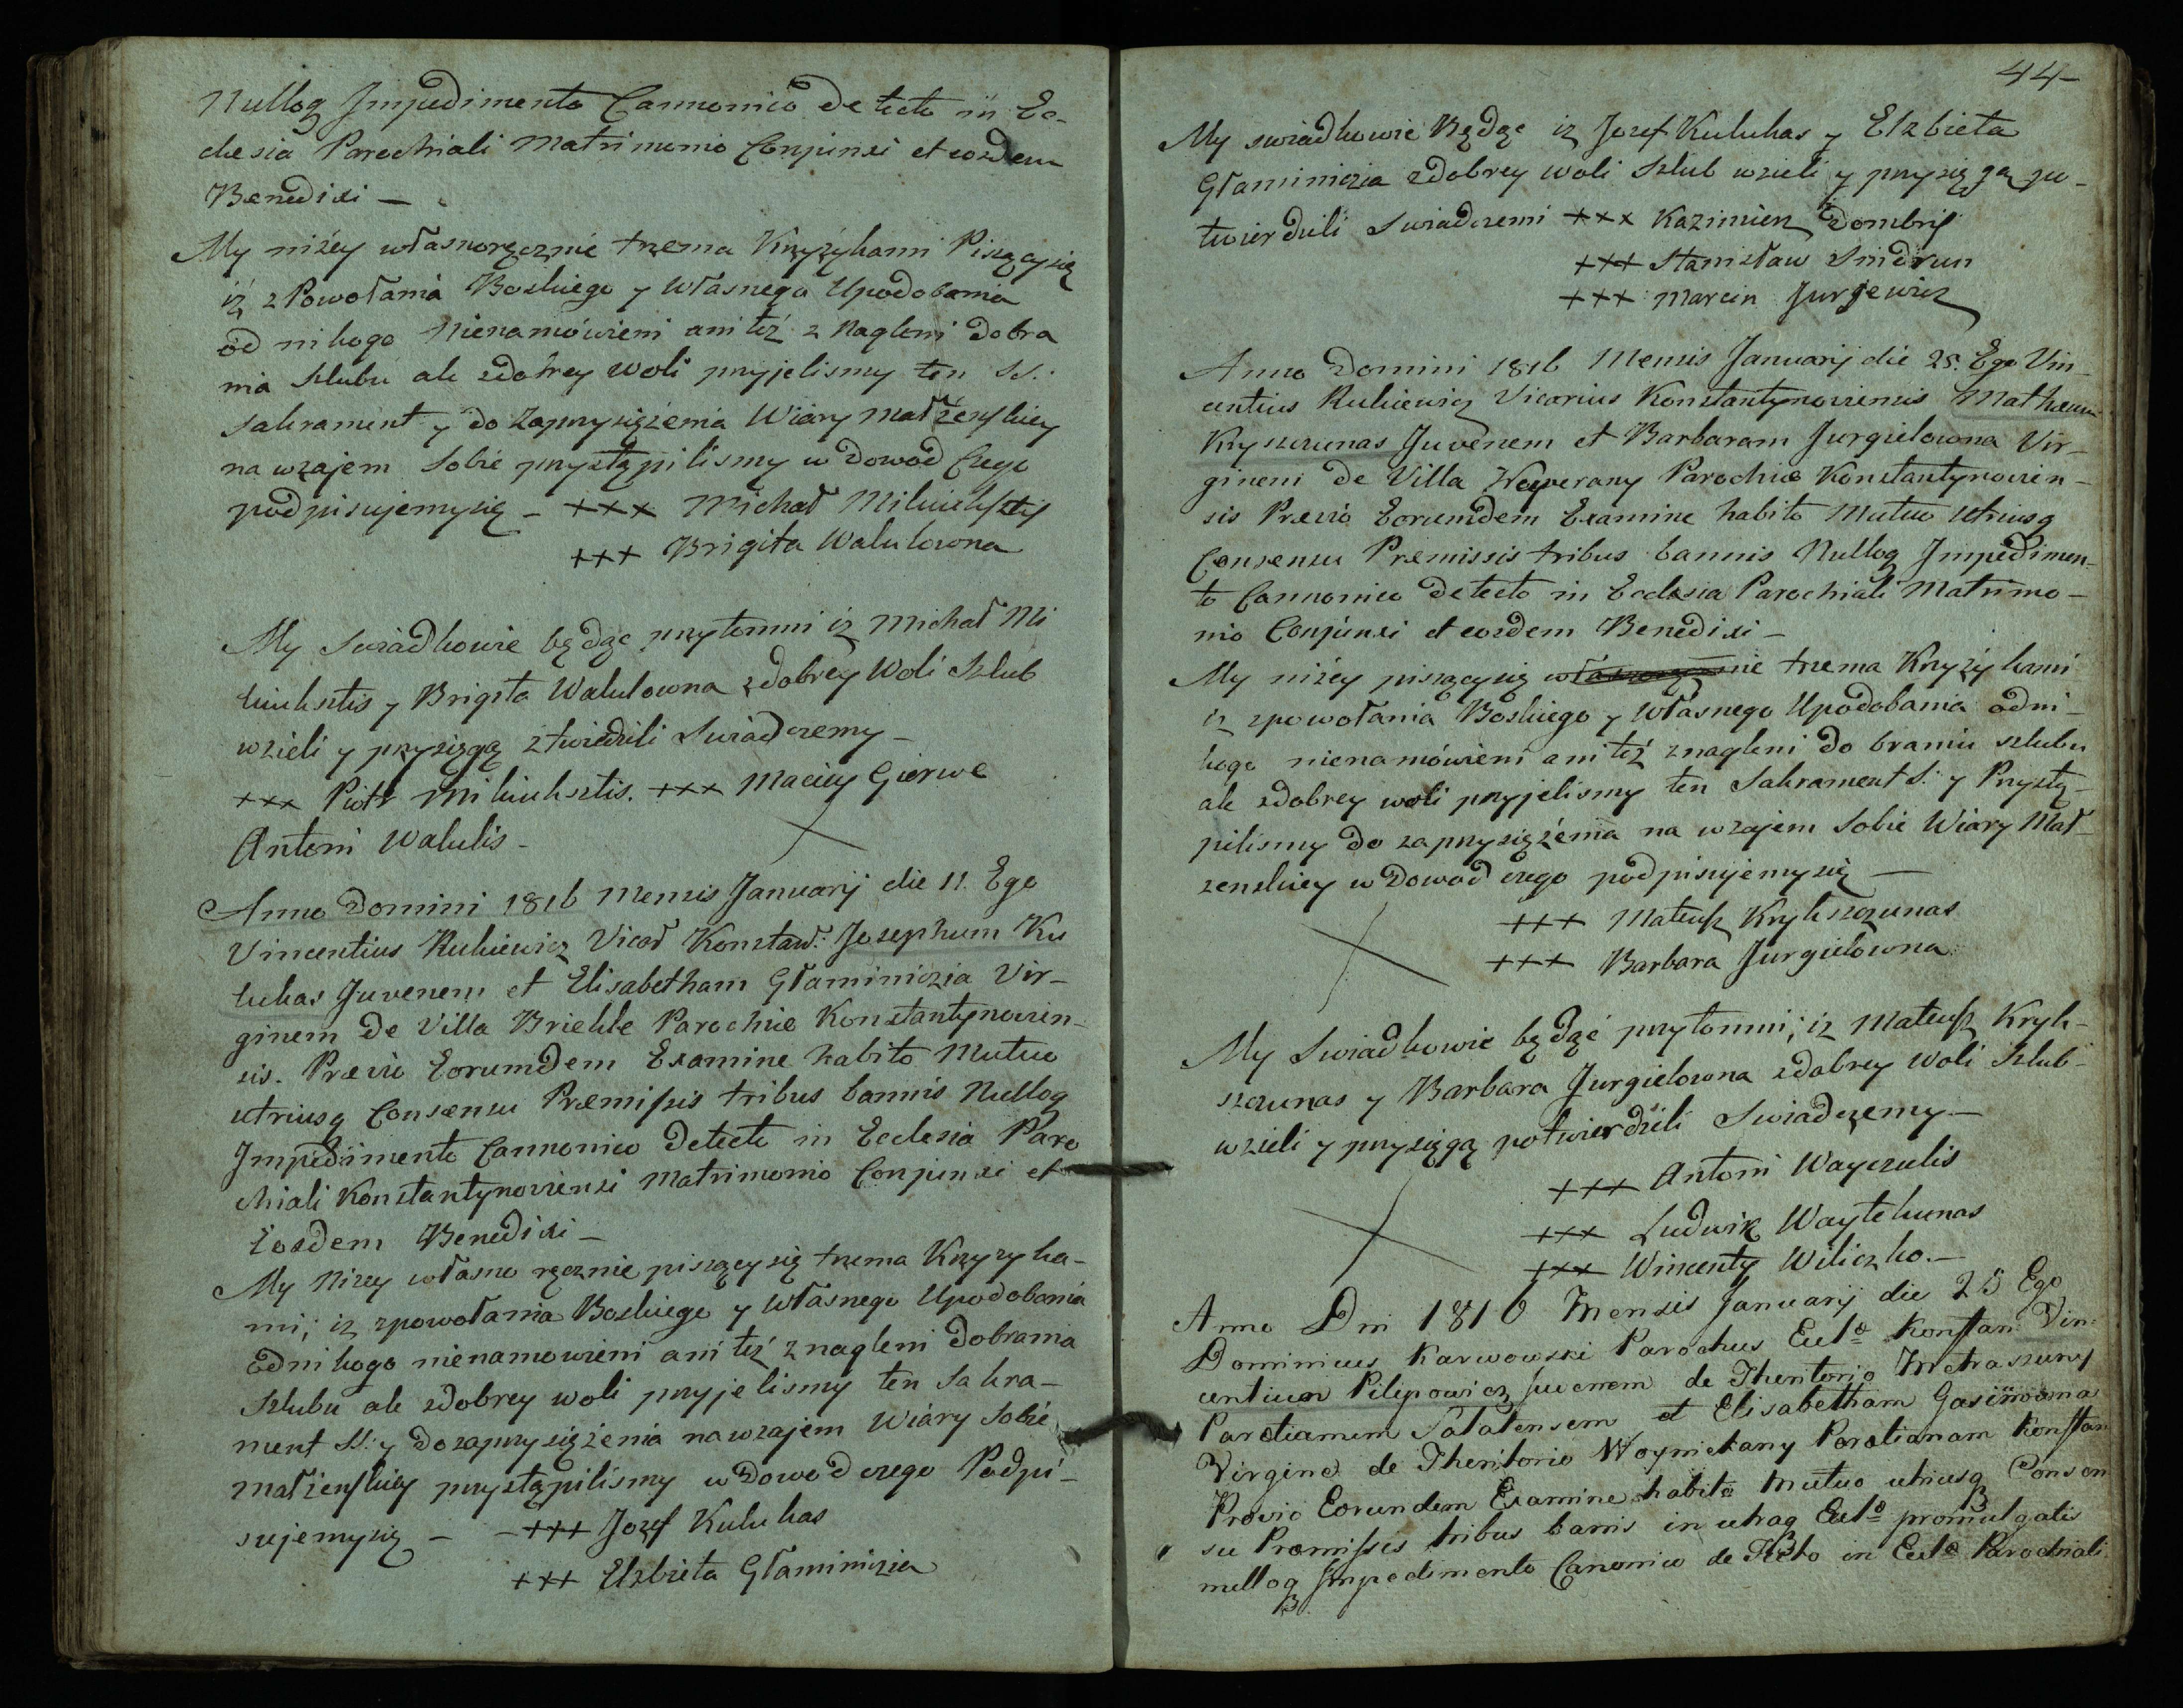 Nulloq Impedimento Cannonico detecto in Ec-
clesia Parochiali Matrimonio Conjunxi et eosdem
Benedixi —
My niżey własnoręcznie trzema Krzyżykami Piszącysię
iż z Powołania Boskiego y własnego Upodobania
od nikogo Nienamówieni ani też z Nagleni dobra
nia szlubu ale zdobrey woli przyjelismy ten SS.:
Sakrament y do Zaprzysiężenia Wiary małżeńskiey
na wzajem sobie przystąpilismy w dowod Czego
podpisujemysię - +++ Michał
+++ Brigita Walulowna
My swiadkowie będąc przytomni iz Michał Mi
kiuksztis y Brigita Walulowna zdobrey Woli Szlub
wzieli y przysięgą ztwierdzili Swiadczemy —
+++ Piotr Mikiuksztis. +++ Maciey Gierwe
Antoni Walulis -
Anno Domini 1816 Mensis Januarij die 11. Ego
Vincentius Rukiewicz Vicar Konstan.: Josephum Ku
lukas Juvenem et Elisabetham Głaminiczia Vir-
ginem de Villa Briekle Parochie Konstantynovien-
sis. Prævio Eorumdem Examine habito Mutuo
utriusq Consensu Præmissis tribus bannis Nulloq
Impedimento Cannonico detecto in Ecclesia Paro
chiali Konstantynoviensi Matrimonio Conjunxi et
Eosdem Benedixi —
My Nizey własno ręcznie piszącysię trzema Krzyzyka-
mi; iz zpowołania Boskiego y własnego Upodobania
Odnikogo nienamowieni ani też znagleni dobrania
Szlubu ale zdobrey woli przyjelismy ten Sakra-
ment SS: y dozaprzysiężenia nawzajem Wiary Sobie
małżeńskiey przystąpilismy w dowod czego Podpi-
sujemysię — - +++ Jozef Kulukas
+++ Elzbieta Głaminiczia
44-
My swiadkowie Będąc iz Jozef Kulukas y Elzbieta
Głaminiczia zdobrey woli Szlub wzieli y przysięgą po-
twierdzili Swiadczemi +++ Kazimierz
+++ Stanisław
+++ Marcin Jurjewicz
Anno Domini 1816 Mensis Januarij die 25. Ego Vin-
centius Rukiewicz Vicarius Konstantynoviensis Matheum
Kryszczunas Juvenem et Barbaram Jurgielowna Vir-
ginem de Villa Parochie Konstantynovien-
sis Prævio Eorumdem Examine habito Mutuo Utriusq
Consensu Præmissis tribus bannis Nulloq Impedimen-
to Cannonico detecto in Ecclesia Parochiali Matrimo-
nio Conjunxi et eosdem Benedixi —
My niżey piszącysię trzema Krzyżykami
iz zpowołania Boskiego y własnego Upodobania odni-
kogo nienamówieni ani też znagleni do braniu szlubu
ale zdobrey woli przyjelismy ten Sakrament S: y Przystą-
pilismy do zaprzysiężenia na wzajem Sobie Wiary Mał-
zenskiey w dowod czego podpisujemysię —
+++ Mateusz Krykszczunas
+++ Barbara Jurgielowna
My Swiadkowie będąć przytomni; iz Mateusz Kryk-
szczunas y Barbara Jurgielowna zdobrey woli Szlub-
wzieli y przysięgą potwierdzili Swiadczemy —
+++ Antoni Wayczulis
+++ Ludwik Waytekunas
+++ Wincenty Wiliczko. —
Anno Dni 1816 Mensis Januarij die 25 Ego
Dominicus Karwowski Parochus Eccl Konstan: Vin-
centium Pilipowicz Juvenem de Theritorio
Parotianum Salatensem et Elisabetham
Virgine de Theritorio Parotianam Konstan
Prævio Eorundem Examine habito Mutuo utriusq Consen
su Præmissis tribus bannis in utraq Eccla promulgatis
nulloq Impedimento Canonico detecto in Eccla Parochiali